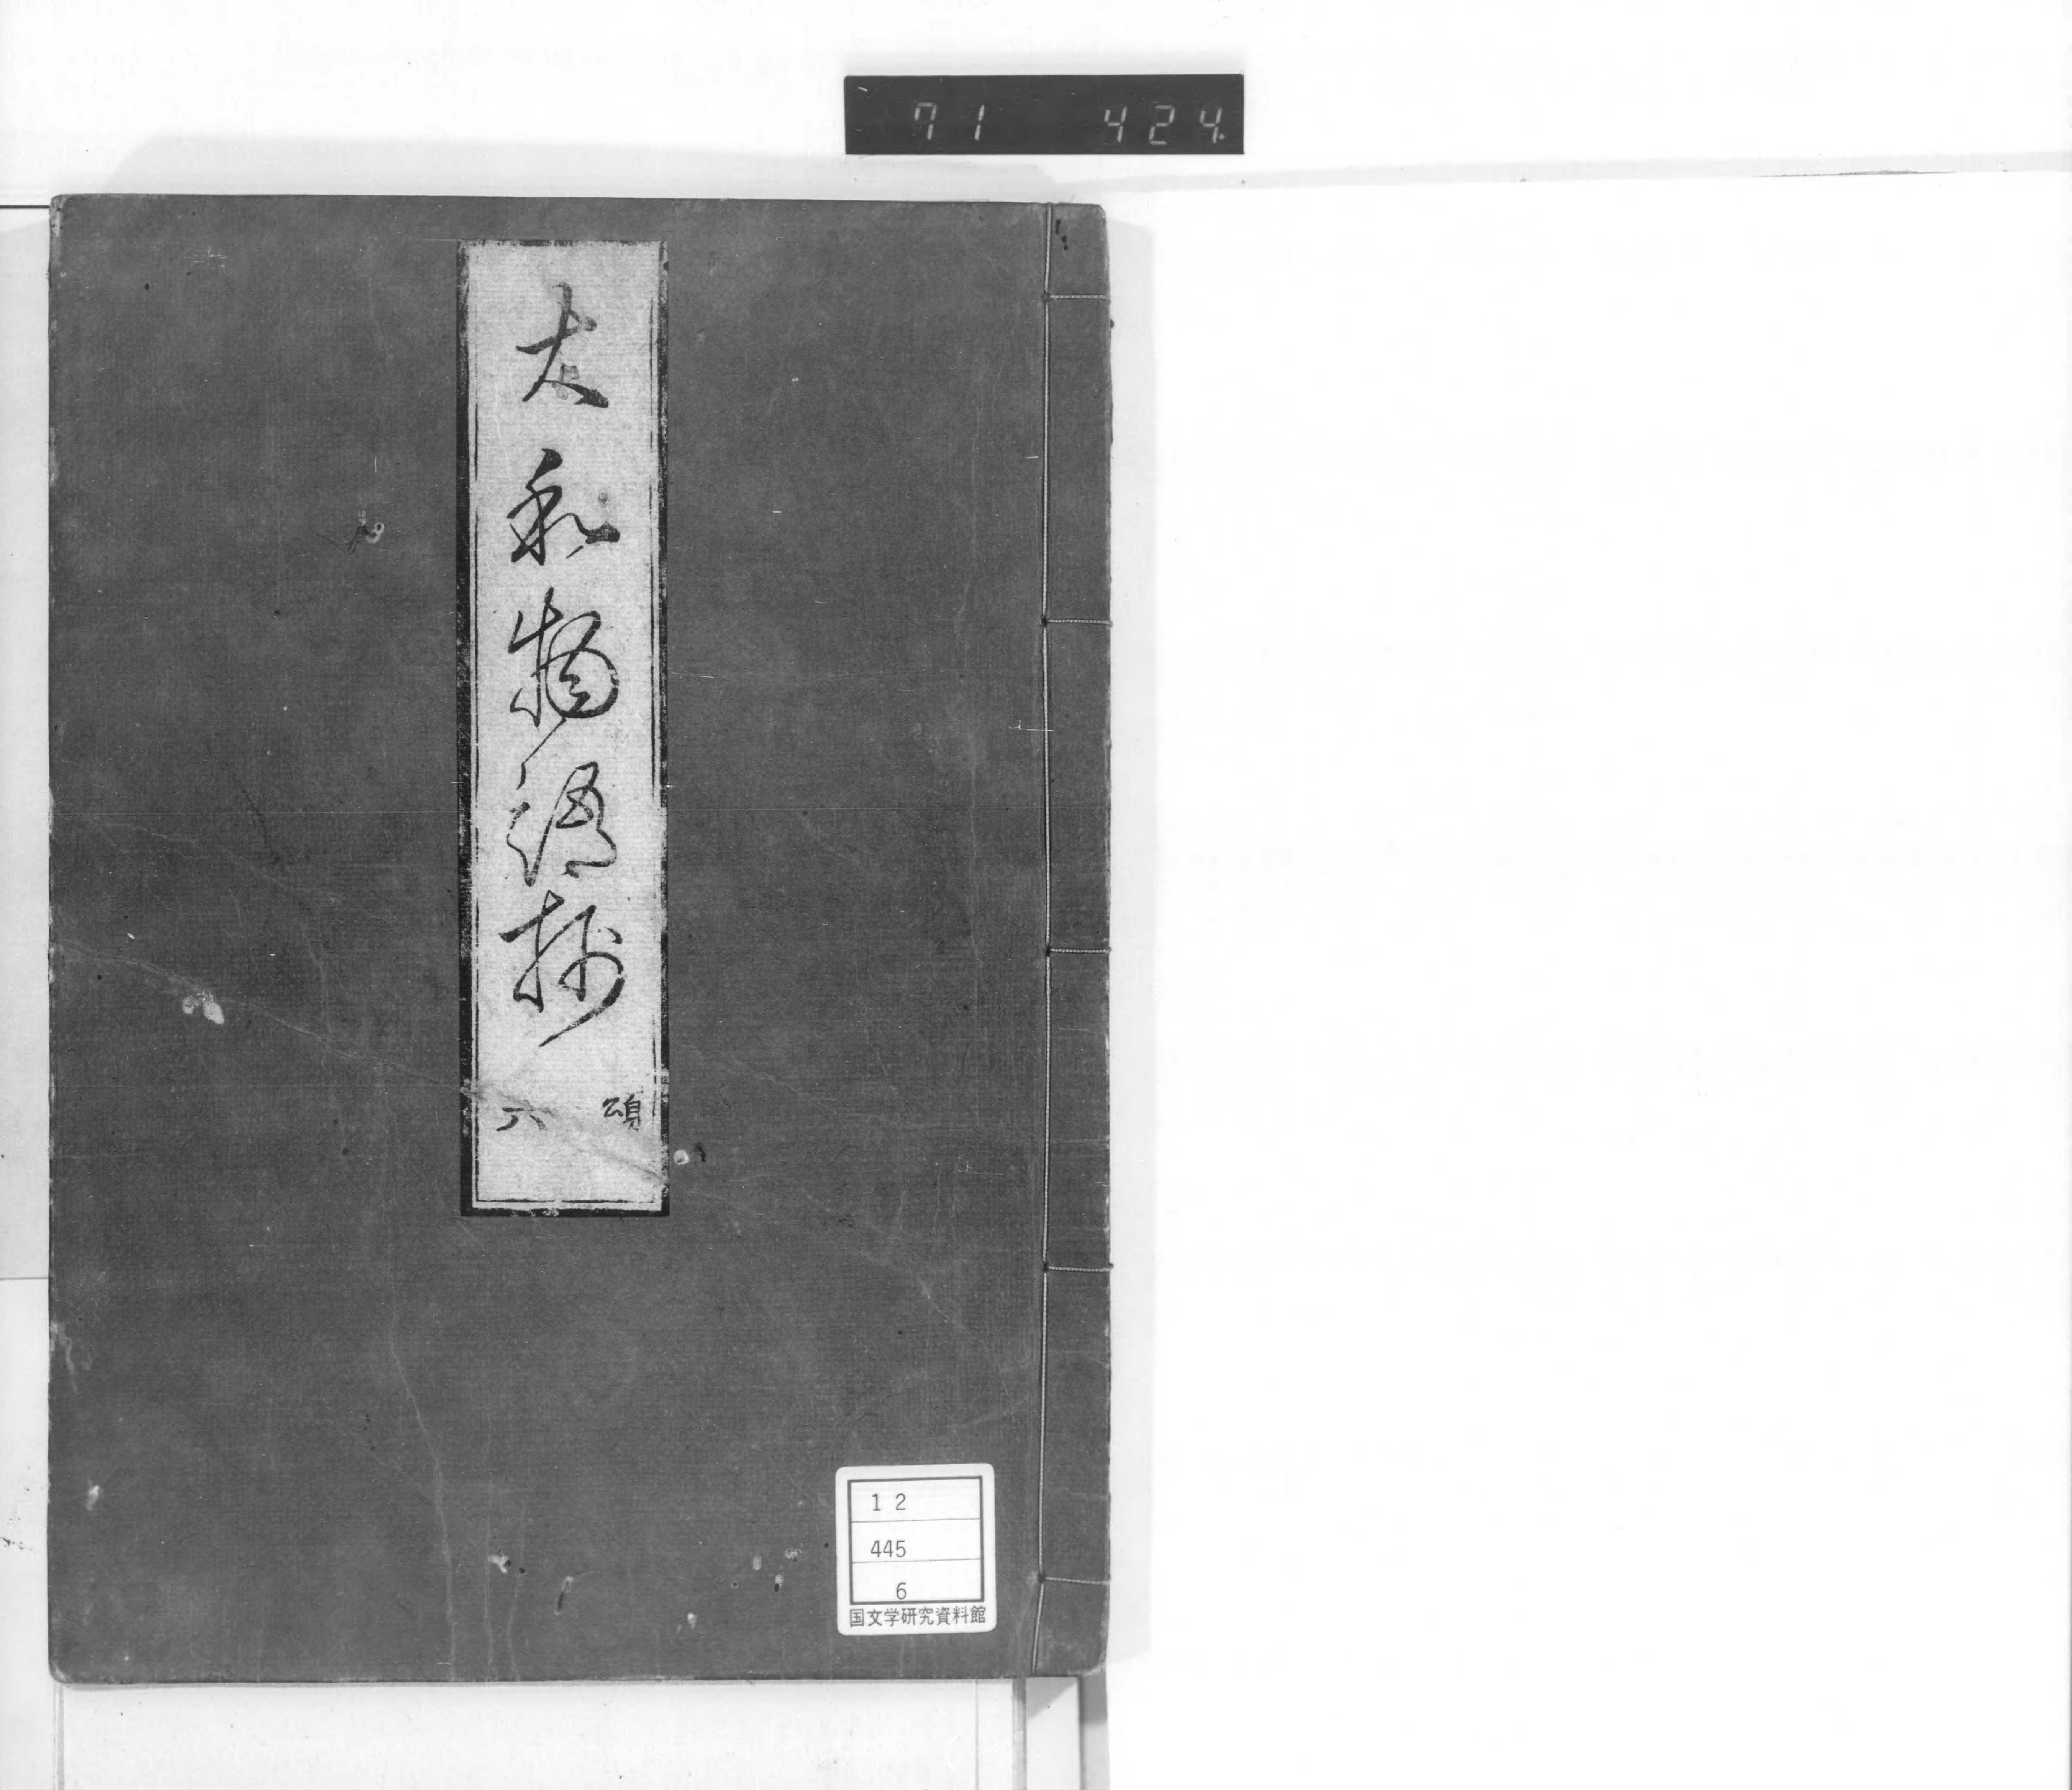 71 424
大和物語抄
頌
六
12
445
6
国文学研究資料館